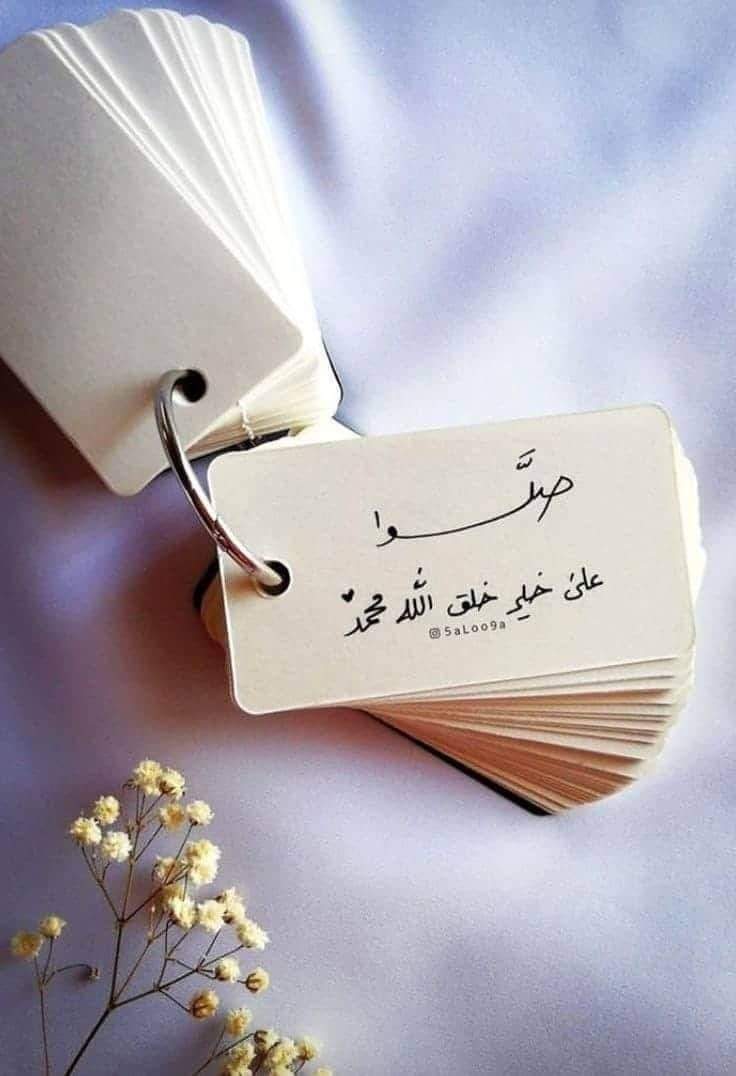 صلَّوا
على خير خلق اللّٰه محمد ♥
5aLoo9a